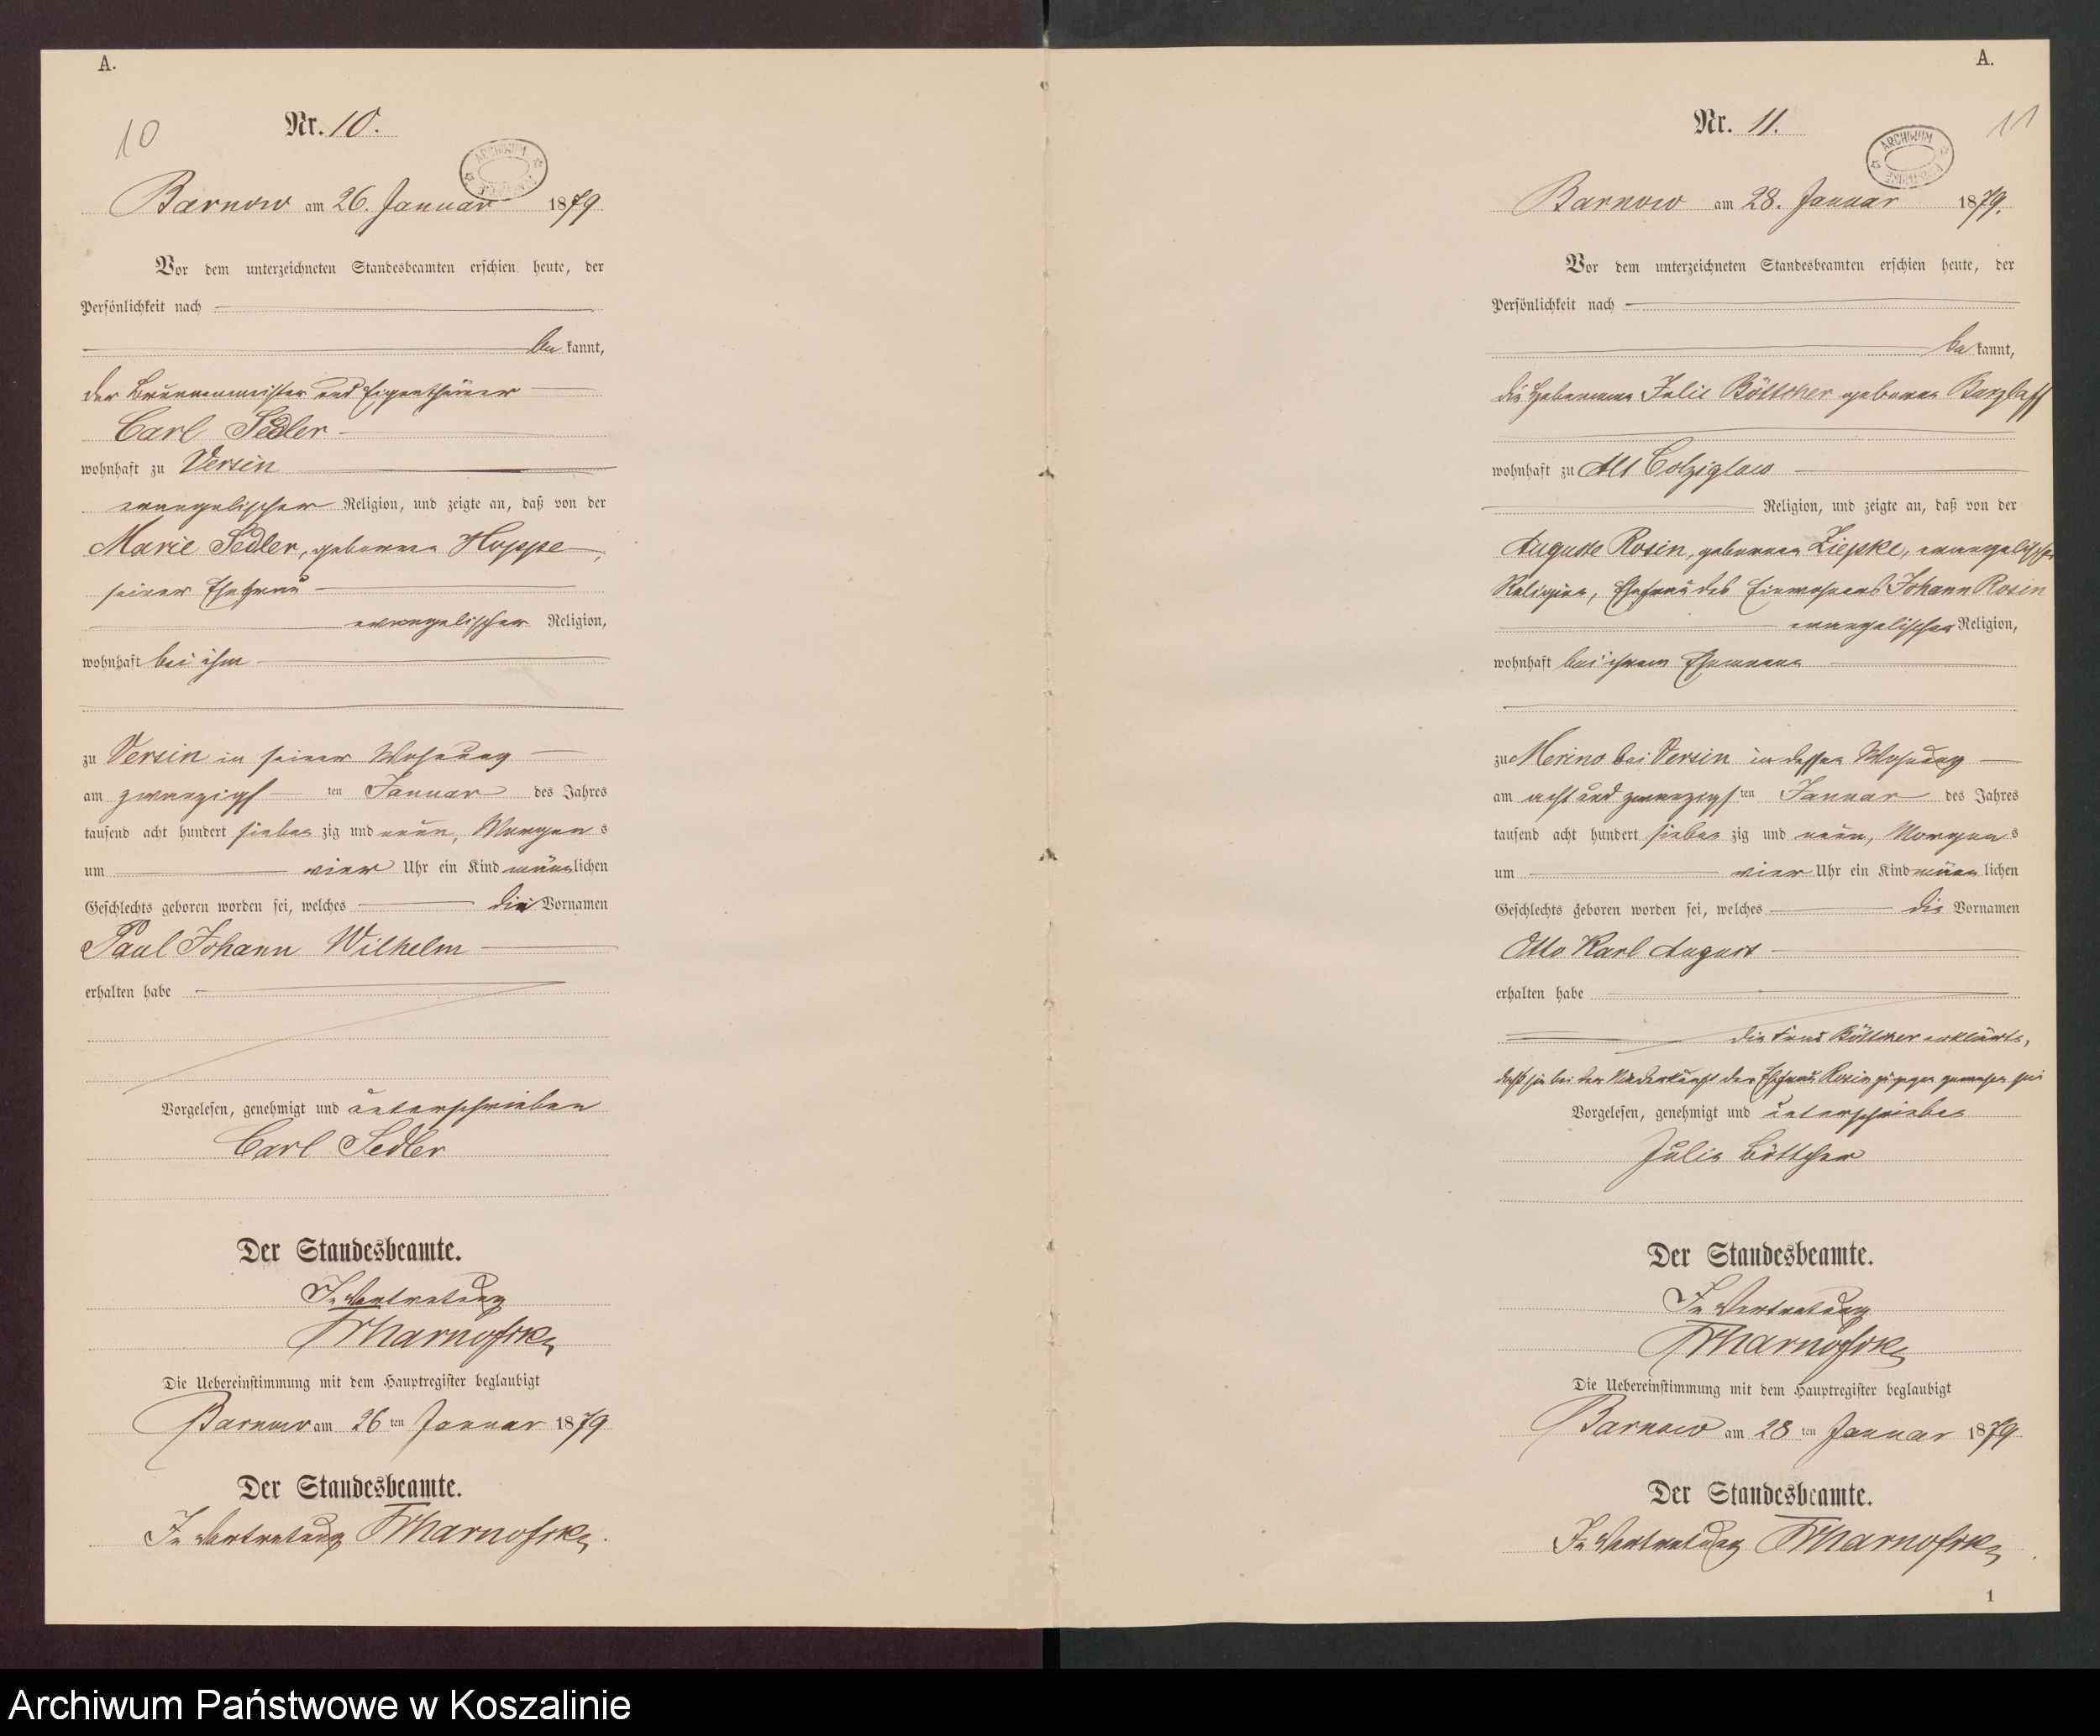 A.
10
Nr. 10.
ARCHIWUM
Barnow am 26. Januar 1879
Vor dem unterzeichneten Standesbeamten erschien heute, der
Persönlichkeit nach
be kannt,
der Brunnenmeister und Eigenthümer
Carl Sedler
wohnhaft zu Versin
evangelischer Religion, und zeigte an, daß von der
Marie Sedler, geborene Hoppe,
seiner Ehefrau
evangelischer Religion,
wohnhaft bei ihm
zu Versin in seiner Wohnung
am zwanzigs ten Januar des Jahres
tausend acht hundert sieben zig und neun, Morgen s
um vier Uhr ein Kind männ lichen
Geschlechts geboren worden sei, welches die Vornamen
Paul Johann Wilhelm
erhalten habe
Vorgelesen, genehmigt und unterschrieben
Carl Sedler
Der Standesbeamte.
In Vertretung
Die Uebereinstimmung mit dem Hauptregister beglaubigt
Barnow am 26 ten Januar 1879
Der Standesbeamte.
In Vertretung
A.
11
Nr. 11.
ARCHIWUM
Barnow am 28. Januar 1879.
Vor dem unterzeichneten Standesbeamten erschien heute, der
Persönlichkeit nach
be kannt,
die Hebamme Julie Böttcher geborene Barzlaff
wohnhaft zu Alt Colziglow
Religion, und zeigte an, daß von der
Auguste Rosin, geborenen Ziepke, evangelischer
Religion, Ehefrau des Einwohners Johann Rosin
evangelischer Religion,
wohnhaft bei ihrem Ehemann
zu Merino bei Versin in dessen Wohnung
am acht und zwanzigs ten Januar des Jahres
tausend acht hundert sieben zig und neun, Morgen s
um vier Uhr ein Kind männ lichen
Geschlechts geboren worden sei, welches die Vornamen
Otto Karl August
erhalten habe
die Frau Böttcher erklärte,
daß sie bei der Niederkunft der Ehefrau Rosin zugegen gewesen sei
Vorgelesen, genehmigt und unterschrieben
Julie Böttcher
Der Standesbeamte.
In Vertretung
Die Uebereinstimmung mit dem Hauptregister beglaubigt
Barnow am 28 ten Januar 1879
Der Standesbeamte.
In Vertretung
1
Archiwum Państwowe w Koszalinie